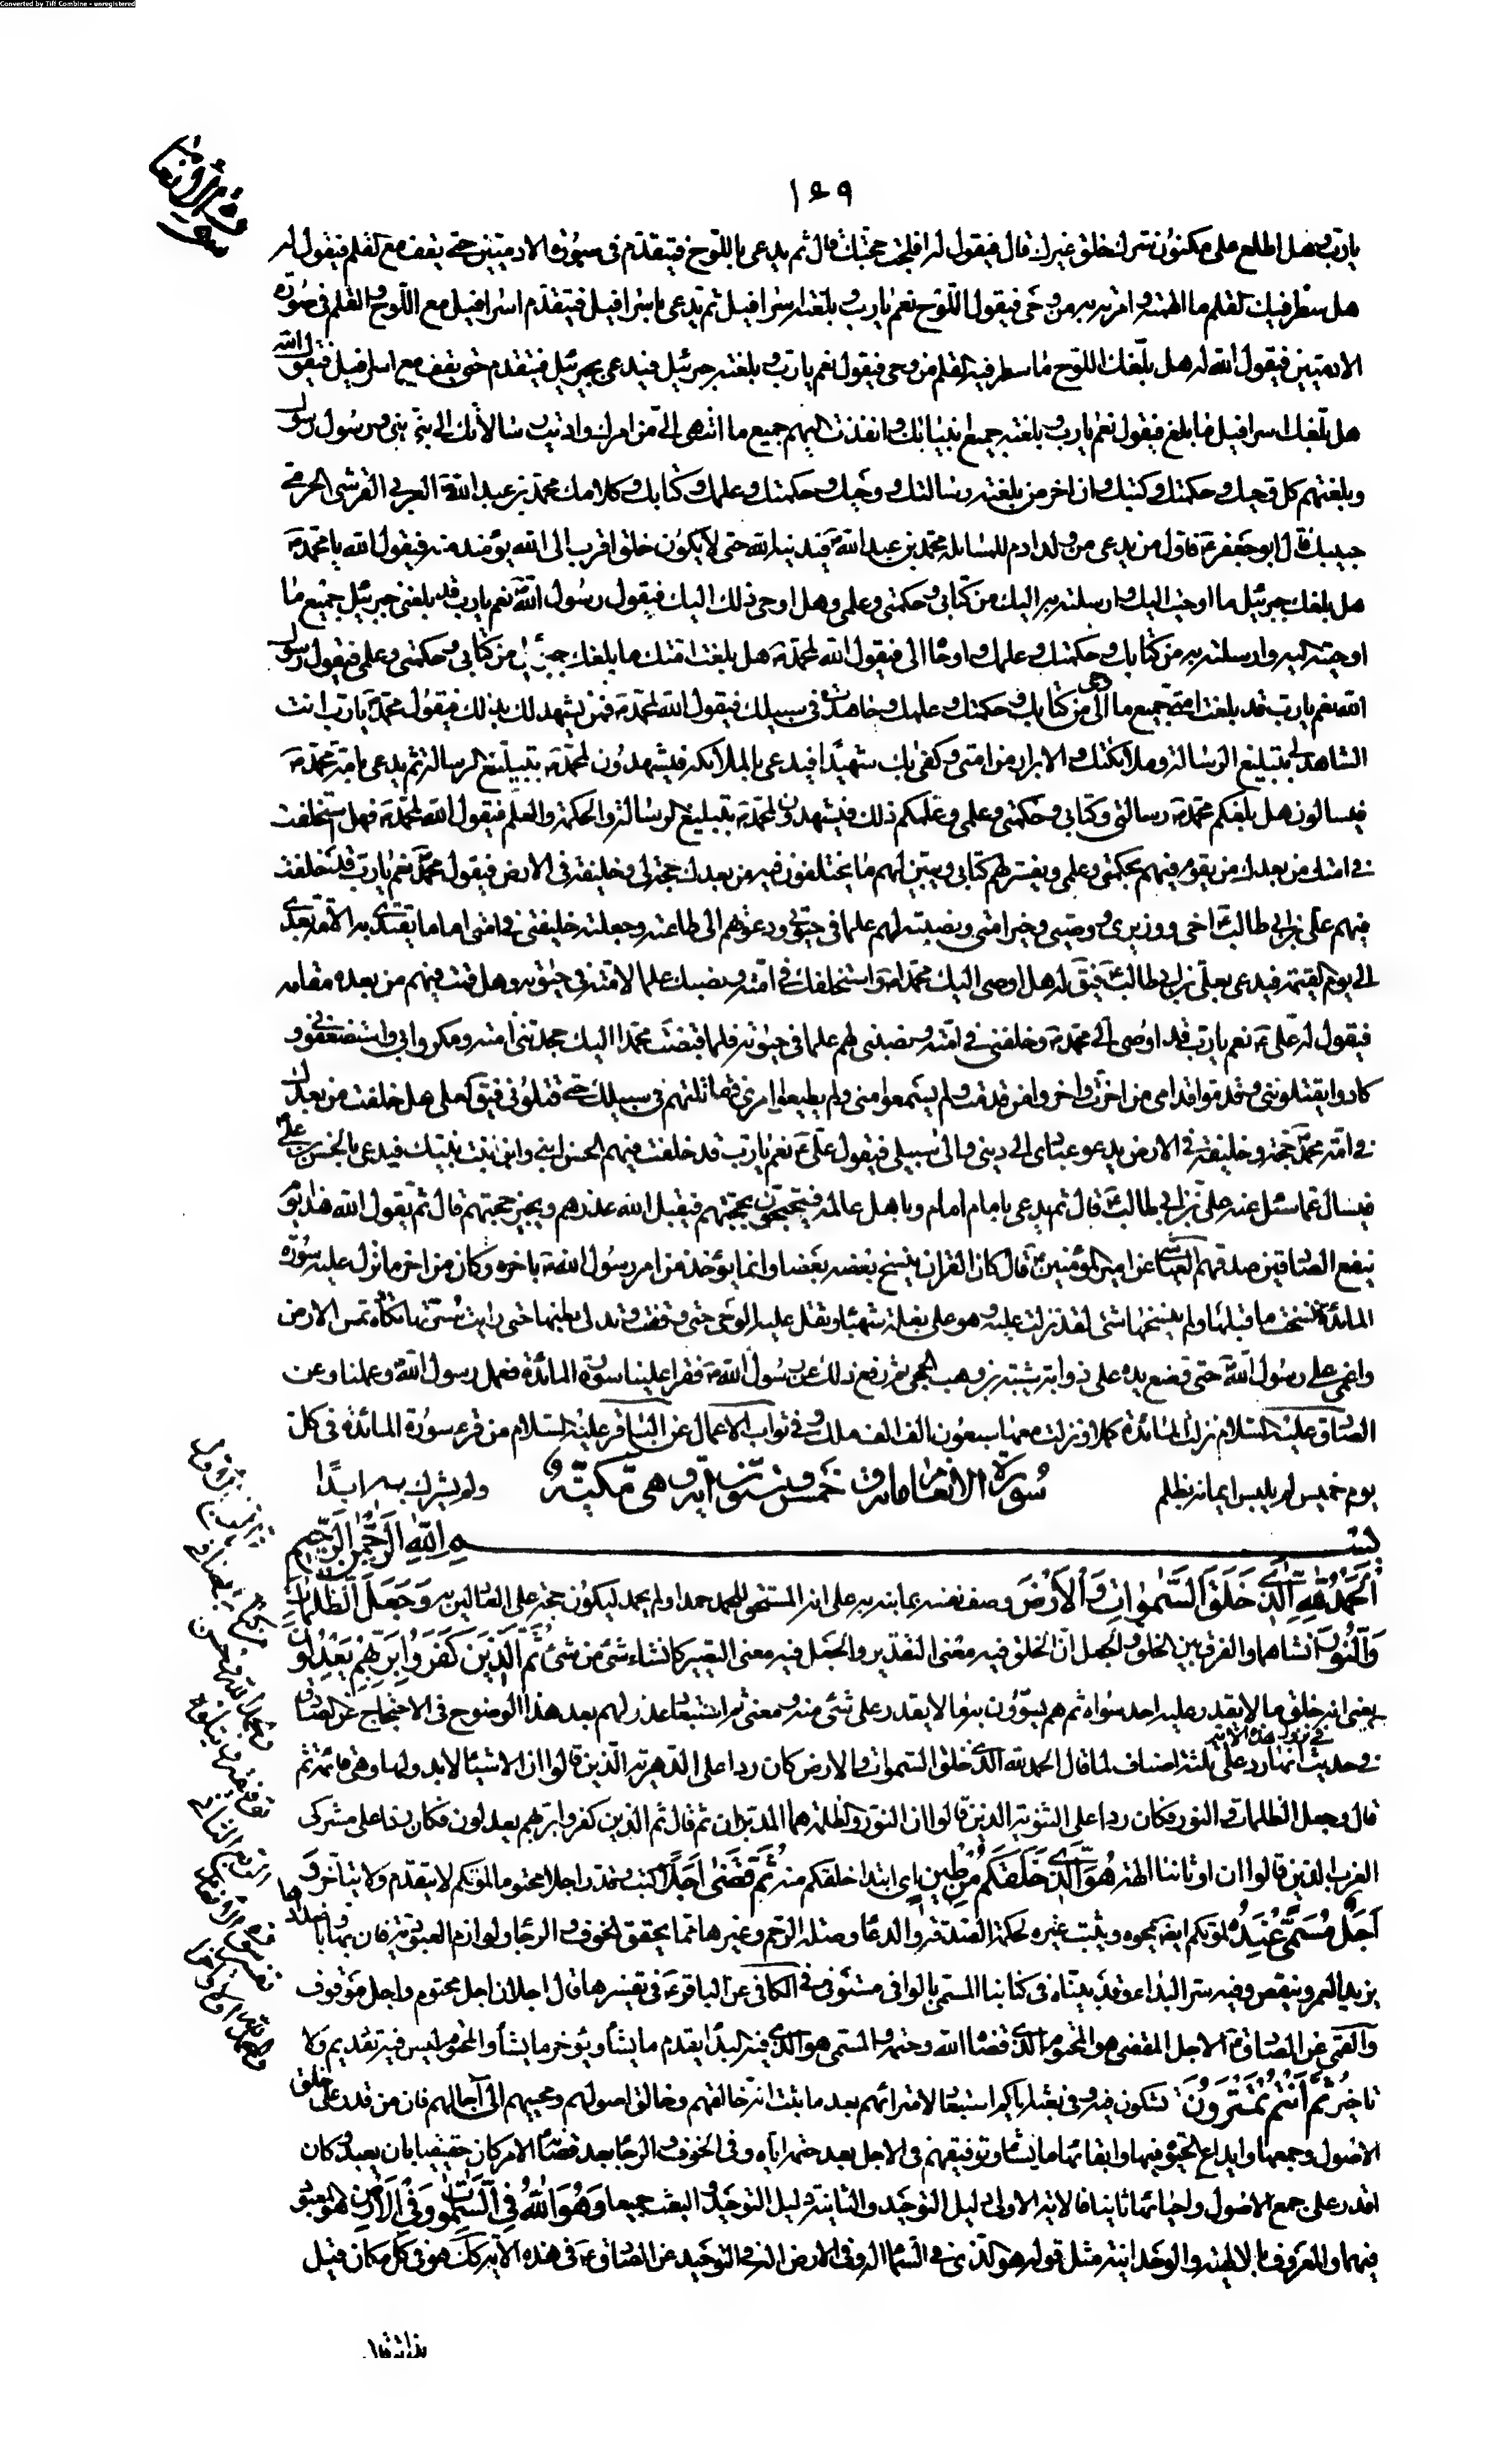 Converted by Tiff Combine - unregistered
١٤٩
يارب وهل اطلع على مكنون سرك خلق غيرك قال فيقول له افلجت حجتك قال ثم يدعى باللوح فيتقدم في صورة الادميين حتى يقف مع القلم فيقول له
هل سطر فيك القلم ما الهمته وامرته به من وحي فيقول اللوح نعم يا رب وبلغته اسرافيل ثم يدعى باسرافيل فيتقدم اسرافيل مع اللوح والقلم في صورة
الادميين فيقول الله له هل بلغك اللوح ما سطر فيه القلم من وحي فيقول نعم يا رب وبلغته جبرئيل فيدعى بجبرئيل فيتقدم حتى يقف مع اسرافيل فيقول الله
هل بلغك اسرافيل ما بلغ فيقول نعم يا رب وبلغته جميع انبيائك وانفذت اليهم جميع ما انتهى الي من امرك واديت رسالاتك الى نبي نبي ورسول رسول
وبلغتهم كل وحيك وحكمتك وكتبك وان اخر من بلغته رسالتك ووحيك وحكمتك وعلمك وكتابك وكلامك محمد بن عبد الله العربي القرشي الحرمي
حبيبك قال ابو جعفر ع فاول من يدعى من ولد ادم للمسائلة محمد بن عبد الله ص فيدنيه الله حتى لا يكون خلق اقرب الى الله يومئذ منه فيقول الله يا محمد ص
هل بلغك جبرئيل ما اوحيت اليك وارسلته به اليك من كتابي وحكمتي وعلمي وهل اوحى ذلك اليك فيقول رسول الله ص نعم يا رب قد بلغني جبرئيل جميع ما
اوحيته اليه وارسلته به من كتابك وحكمتك وعلمك واوحاه الي فيقول الله لمحمد ص هل بلغت امتك ما بلغك جبرئيل من كتابي وحكمتي وعلمي فيقول رسول
الله نعم يا رب قد بلغت امتي جميع ما اوحى الي من كتابك وحكمتك وعلمك وجاهدت في سبيلك فيقول الله لمحمد ص فمن يشهد لك بذلك فيقول محمد ص يا رب انت
الشاهد لي بتبليغ الرسالة وملائكتك والابرار من امتي وكفى بك شهيدا فيدعى بالملائكة فيشهدون لمحمد ص بتبليغ الرسالة ثم يدعى بامة محمد ص
فيسالون هل بلغكم محمد ص رسالتي وكتابي وحكمتي وعلمي وعلمكم ذلك فيشهدون لمحمد ص بتبليغ الرسالة والحكمة والعلم فيقول الله لمحمد ص فهل استخلفت
في امتك من بعدك من يقوم فيهم بحكمتي وعلمي ويفسر لهم كتابي ويبين لهم ما يختلفون فيه من بعدك حجة لي وخليفة في الارض فيقول محمد ص نعم يا رب قد خلفت
فيهم علي بن ابي طالب ع اخي ووزيري ووصيي وخير امتي ونصبته لهم علما في حيوتي ودعوتهم الى طاعته وجعلته خليفتي في امتي اماما يقتدي به الامة بعدي
الى يوم القيمة فيدعى بعلي بن ابي طالب ع فيق له هل اوصى اليك محمد ص واستخلفك في امته ونصبك علما لامته في حيوته وهل قمت فيهم من بعده مقامه
فيقول له علي ع نعم يا رب قد اوصى الي محمد ص وخلفني في امته ونصبني لهم علما في حيوته فلما قبضت محمدا اليك جحدتني امته ومكروا بي واستضعفوني و
كادوا يقتلونني وقدموا قدامي من اخرت واخروا من قدمت ولم يسمعوا مني ولم يطيعوا امري فقاتلتهم في سبيلك حتى قتلوني فيق لعلي هل خلفت من بعدك
في امة محمد حجة وخليفة في الارض يدعو عبادي الى ديني والى سبيلي فيقول علي ع نعم يا رب قد خلفت فيهم الحسن ابني وابن بنت نبيك فيدعى بالحسن بن علي ع
فيسال عما سئل عنه علي بن ابي طالب ع قال ثم يدعى بامام امام وباهل عالمه فيحتجون بحجتهم فيقبل الله عذرهم ويجيز حجتهم قال ثم يقول الله هذا يوم
ينفع الصادقين صدقهم العياشي عن امير المؤمنين ع قال كان القران ينسخ بعضه بعضا وانما يؤخذ من امر رسول الله ص باخره وكان من اخر ما نزل عليه سورة
المائدة نسخت ما قبلها ولم ينسخها شئ لقد نزلت عليه وهو على بغلة شهباء وثقل عليه الوحي حتى وقفت وتدلى بطنها حتى رايت سرتها تكاد تمس الارض
واغمي على رسول الله ص حتى وضع يده على ذؤابة شيبة بن وهب الجمحي ثم رفع ذلك عن رسول الله ص فقرا علينا سورة المائدة فعمل رسول الله ص وعملنا وعن
الصادق عليه السلام نزلت المائدة كملا ونزلت معها سبعون الف الف ملك وفي ثواب الاعمال عن الباقر عليه السلام من قرء سورة المائدة في كل
يوم خميس لم يلبس ايمانه بظلم ولم يشرك به ابدا
سورة الانعام مائة وخمس وستون اية وهي مكية
بسم الله الرحمن الرحيم
اَلْحَمْدُ لِلّهِ الَّذي خَلَقَ السَّمٰوَاتِ وَالْاَرْضَ وصف نفسه بما نبه به على انه المستحق للحمد حمد او لم يحمد ليكون حجة على العادلين به وَجَعَلَ الظُّلُمَاتِ
وَالنُّورَ انشاهما والفرق بين الخلق والجعل ان الخلق فيه معنى التقدير والجعل فيه معنى التصيير كانشاء شئ من شئ ثُمَّ الَّذينَ كَفَرُوا بِرَبِّهِمْ يَعْدِلُونَ
يعني انه خلق ما لا يقدر عليه احد سواه ثم هم يسوون به ما لا يقدر على شئ منه ومعنى ثم استبعاد عدولهم بعد هذا الوضوح في الاحتجاج عن الصادق ع
في نزول هذه الاية
في حديث انها رد على ثلثة اصناف لما قال الحمد لله الذي خلق السموات والارض كان ردا على الدهرية الذين قالوا ان الاشياء لا بدو لها وهي قائمة ثم
قال وجعل الظلمات والنور فكان ردا على الثنوية الذين قالوا ان النور والظلمة هما المدبران ثم قال ثم الذين كفروا بربهم يعدلون فكان ردا على مشركي
العرب الذين قالوا ان اوثاننا الهة هُوَ الَّذي خَلَقَكُمْ مِنْ طينٍ اي ابتدا خلقكم منه ثُمَّ قَضٰى اَجَلًا كتب وقدر اجلا محتوما لموتكم لا يتقدم ولا يتاخر وَ
اَجَلٌ مُسَمًّى عِنْدَهُ لموتكم ايضا يمحوه ويثبت غيره لحكمة الصدقة والدعاء وصلة الرحم وغيرها مما يحقق الخوف والرجاء ولوازم العبودية فان بها واضدادها
يزيد العمر وينقص وفيه سر البداء وقد بيناه في كتابنا المسمى بالوافي مستوفى في الكافي عن الباقر ع في تفسيرها قال اجلان اجل محتوم واجل موقوف
والقمي عن الصادق ع الاجل المقضي هو المحتوم الذي قضاه الله وحتمه والمسمى هو الذي فيه البداء يقدم ما يشاء ويؤخر ما يشاء والمحتوم ليس فيه تقديم ولا
تاخير ثُمَّ اَنْتُمْ تَمْتَرُونَ تشكون استبعاد لامترائهم بعد ما ثبت انه خالقهم وخالق اصولهم ومحييهم الى آجالهم فان من قدر على خلق
الاصول وجمعها وايداع الحيوة فيها وابقائها ما يشاء كان
اقدر على جمع الاصول واحيائها ثانيا فالاية الاولى دليل التوحيد والثانية دليل البعث وَهُوَ اللهُ فِي السَّمٰوَاتِ وَفِي الْاَرْضِ هو المعبود
فيهما والمعروف بالالهية والوحدانية مثل قوله هو الذي في السماء اله وفي الارض اله في التوحيد عن الصادق ع في هذه الاية كك هو في كل مكان قيل